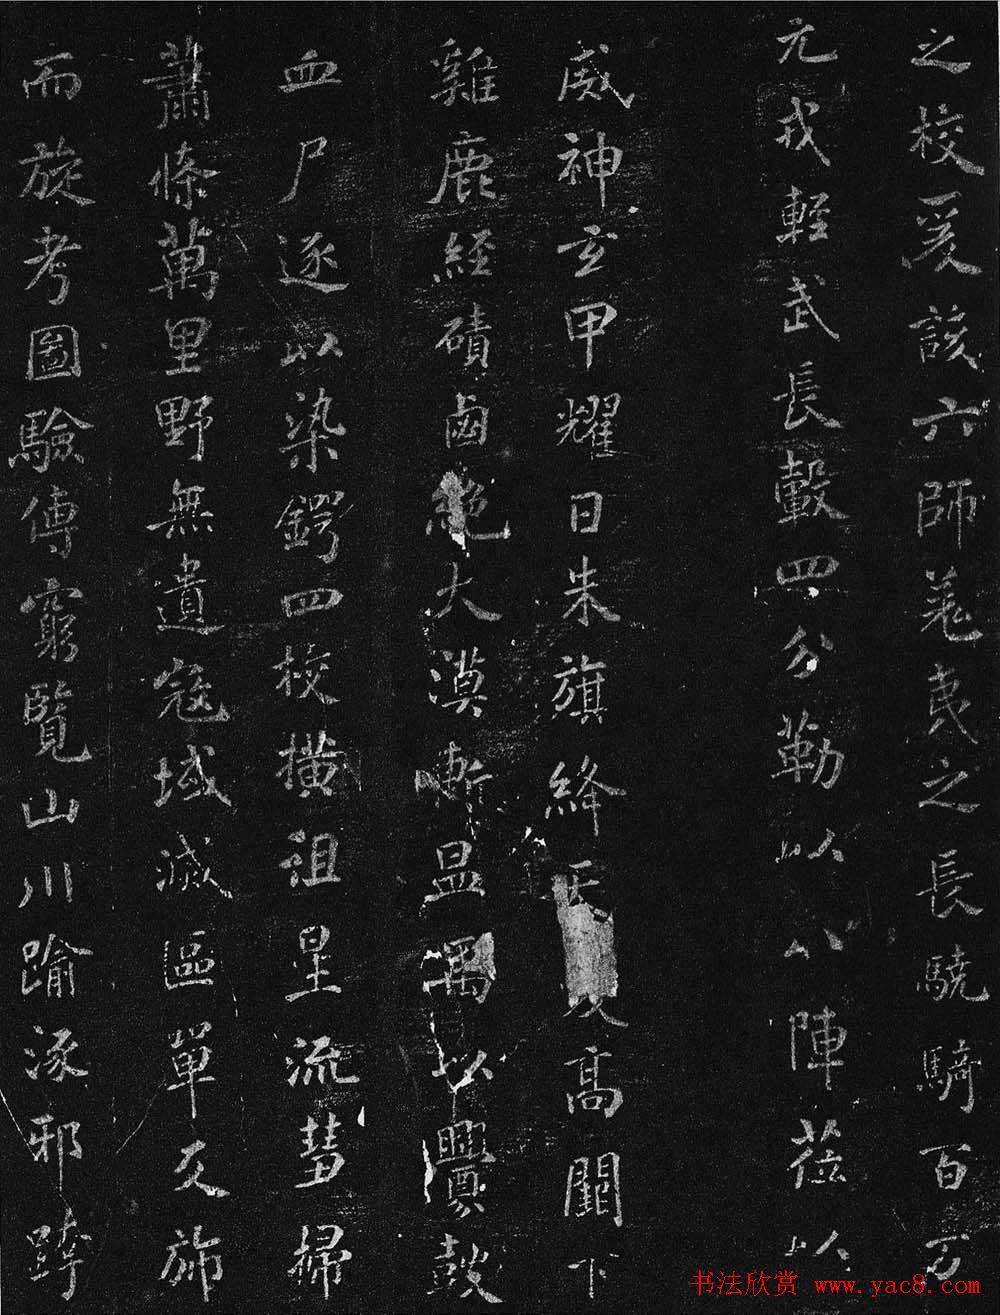 之校爰該六師羗夷之長驍騎百万
元戎輕武長轂四分勒以八陣莅以
威神玄甲耀日朱旗絳天高闕下
雞鹿經磧鹵絕大漠斬昷禺以釁鼓
血尸逐以染鍔四校橫徂星流彗掃
蕭條萬里野無遺寇域滅區單反斾
而旋考圖驗傳窮覽山川踰涿邪跨
书法欣赏 www.yac8.com